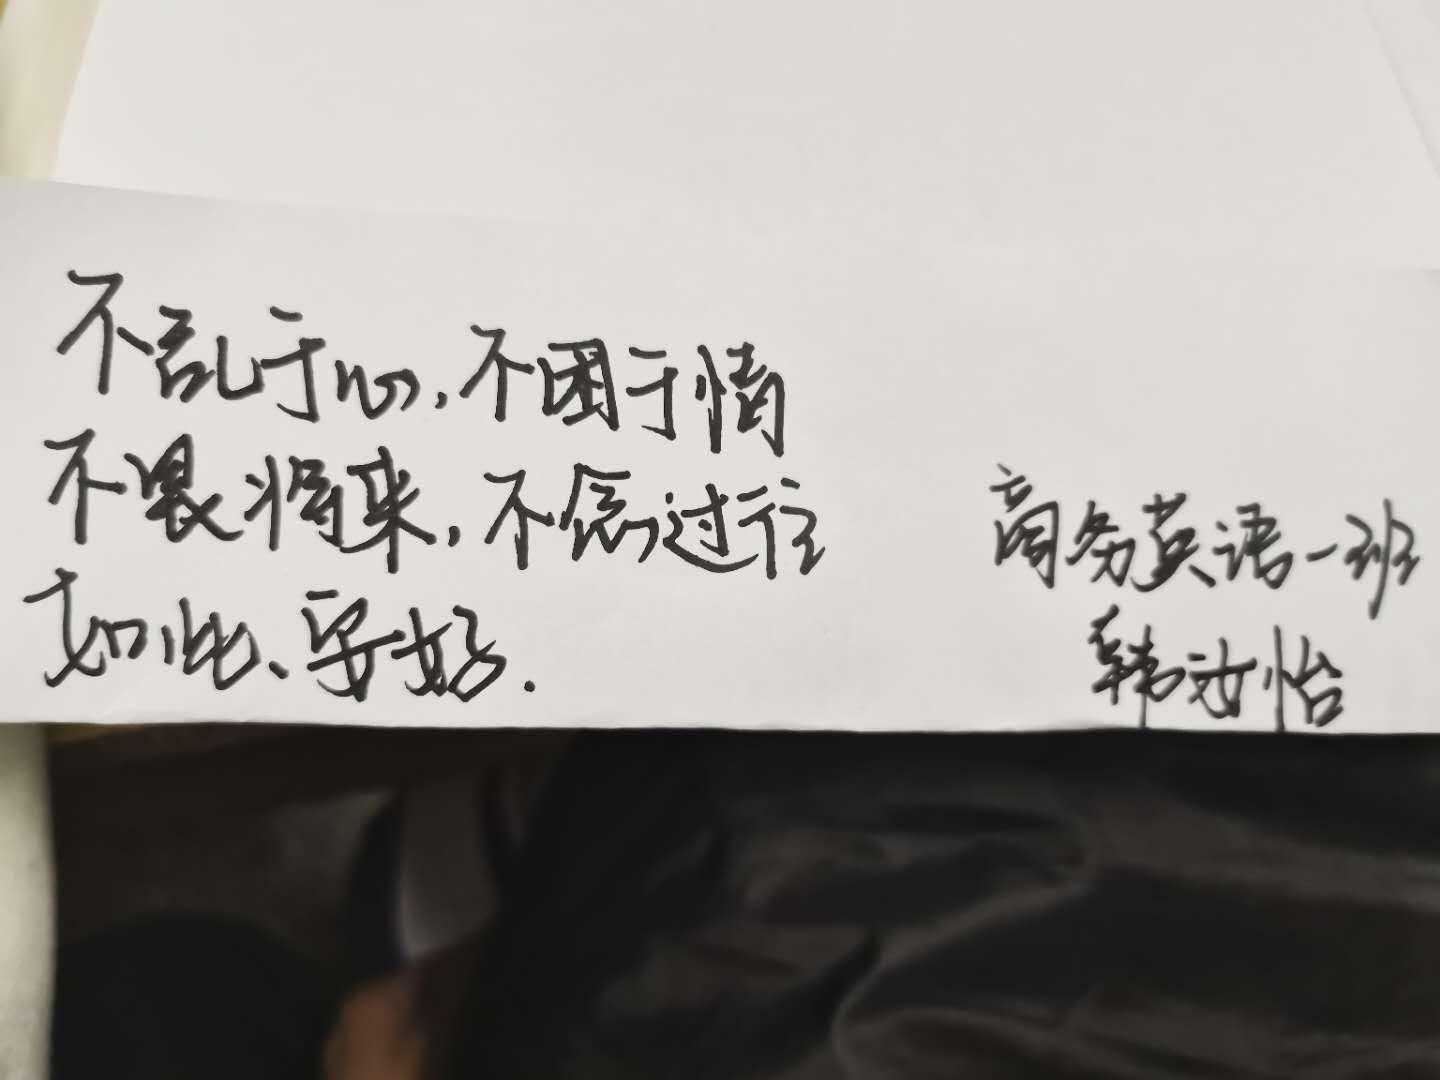 不乱于心,不困于情
不畏将来,不念过往
如此、安好.
商务英语一班
韩汝怡